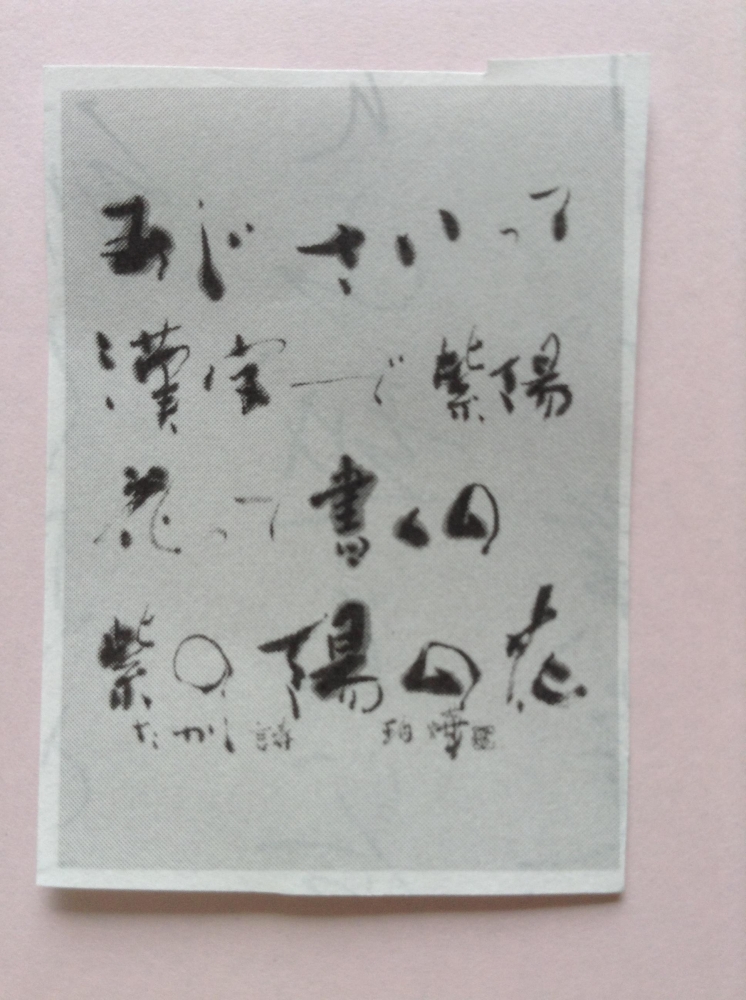 あじさいって
漢字で紫陽
花って書くの
紫の陽の花
たかし詩